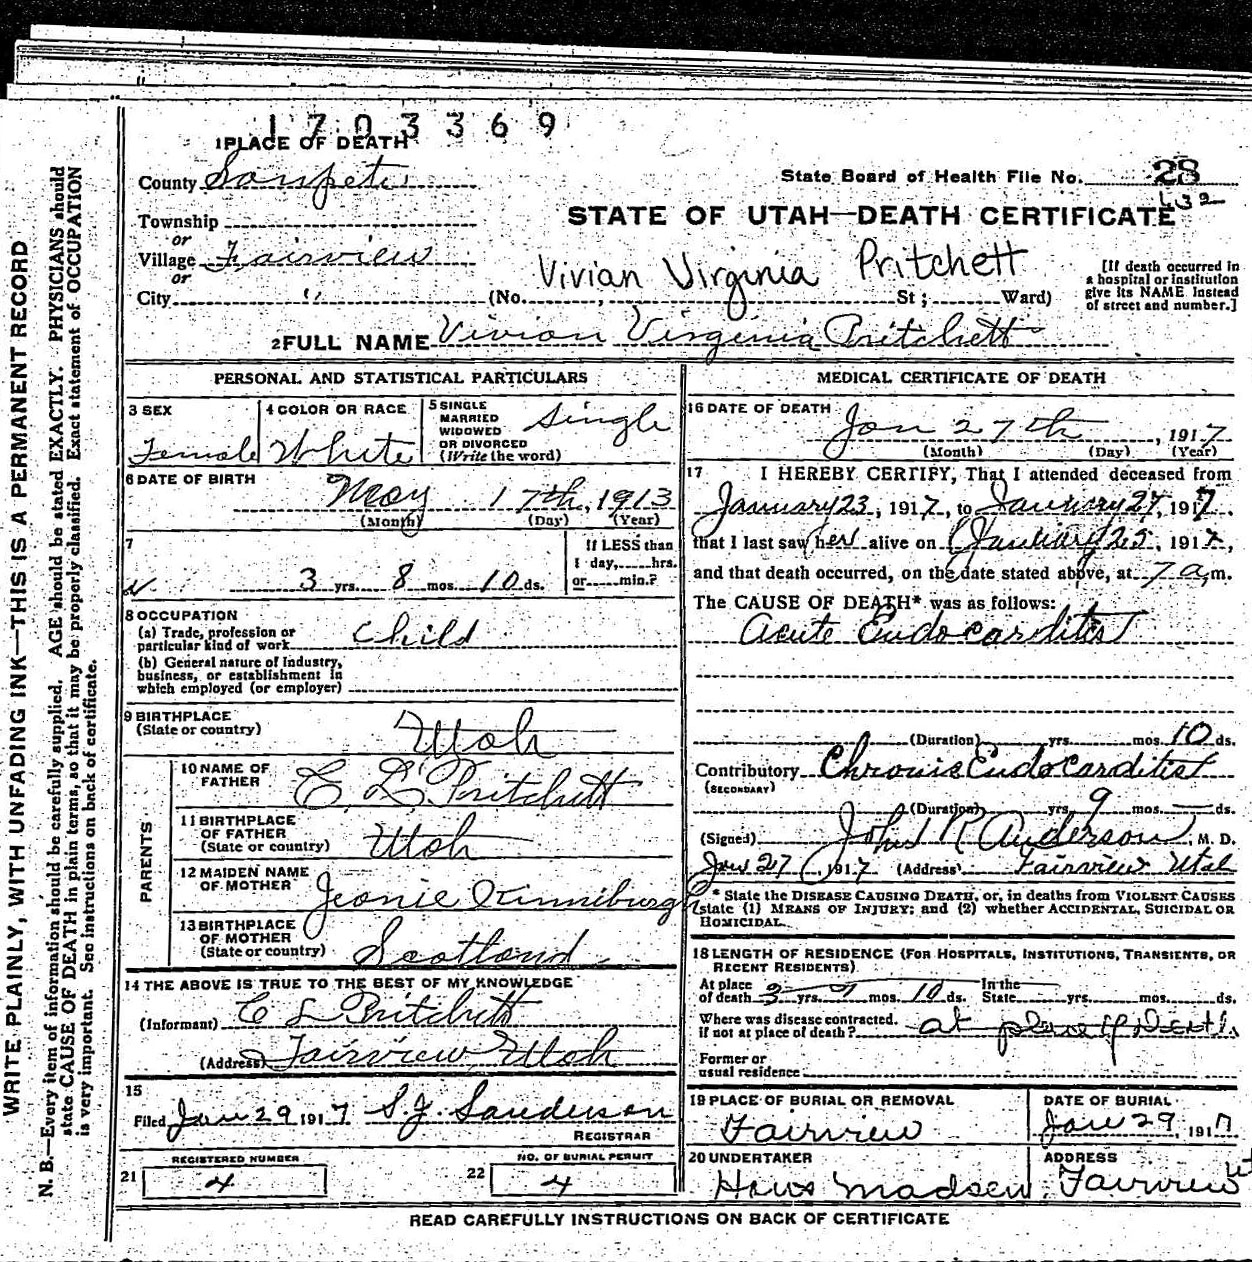 1703369
1 PLACE OF DEATH
County Sanpete
State Board of Health File No. 28
132
Township
STATE OF UTAH—DEATH CERTIFICATE
or
Village Fairview
or
Vivian Virginia Pritchett
City " (No. , St ; Ward)
[If death occurred in
a hospital or institution
give its NAME instead
of street and number.]
2 FULL NAME Vivian Virginia Pritchett
PERSONAL AND STATISTICAL PARTICULARS
3 SEX
Female
4 COLOR OR RACE
White
5 SINGLE
MARRIED
WIDOWED
OR DIVORCED
(Write the word)
Single
6 DATE OF BIRTH
May 17th, 1913
(Month) (Day) (Year)
7
3 yrs. 8 mos. 10 ds.
If LESS than
1 day, hrs.
or min.?
8 OCCUPATION
(a) Trade, profession or
particular kind of work Child
(b) General nature of industry,
business, or establishment in
which employed (or employer)
9 BIRTHPLACE
(State or country) Utah
PARENTS
10 NAME OF
FATHER C. L. Pritchett
11 BIRTHPLACE
OF FATHER
(State or country) Utah
12 MAIDEN NAME
OF MOTHER Jeanie Kinniburgh
13 BIRTHPLACE
OF MOTHER
(State or country) Scotland
14 THE ABOVE IS TRUE TO THE BEST OF MY KNOWLEDGE
(Informant) C L Pritchett
(Address) Fairview Utah
15
Filed Jan 29 1917 S. J. Sanderson
REGISTRAR
REGISTERED NUMBER
21 4
NO. OF BURIAL PERMIT
22 4
MEDICAL CERTIFICATE OF DEATH
16 DATE OF DEATH
Jan 27th, 1917
(Month) (Day) (Year)
17 I HEREBY CERTIFY, That I attended deceased from
January 23, 1917, to January 27, 1917.
that I last saw her alive on January 25, 1917,
and that death occurred, on the date stated above, at 7 a, m.
The CAUSE OF DEATH* was as follows:
Acute Endocarditist
(Duration) yrs. mos. 10 ds.
Contributory Chronic Endocarditist
(SECONDARY)
(Duration) yrs. 9 mos. — ds.
(Signed) John R Anderson, M. D.
Jan 27, 1917 (Address) Fairview Utah
* State the DISEASE CAUSING DEATH, or, in deaths from VIOLENT CAUSES
state (1) MEANS OF INJURY; and (2) whether ACCIDENTAL, SUICIDAL OR
HOMICIDAL.
18 LENGTH OF RESIDENCE (FOR HOSPITALS, INSTITUTIONS, TRANSIENTS, OR
RECENT RESIDENTS)
At place
of death 3 yrs. mos. 10 ds. In the
State yrs. mos. ds.
Where was disease contracted.
if not at place of death? at place of Death
Former or
usual residence
19 PLACE OF BURIAL OR REMOVAL
Fairview
DATE OF BURIAL
Jan 29, 1917
20 UNDERTAKER
Hans Madsen
ADDRESS
Fairview Ut
READ CAREFULLY INSTRUCTIONS ON BACK OF CERTIFICATE
WRITE PLAINLY, WITH UNFADING INK—THIS IS A PERMANENT RECORD
N. B.—Every item of information should be carefully supplied. AGE should be stated EXACTLY. PHYSICIANS should
state CAUSE OF DEATH in plain terms, so that it may be properly classified. Exact statement of OCCUPATION
is very important. See instructions on back of certificate.